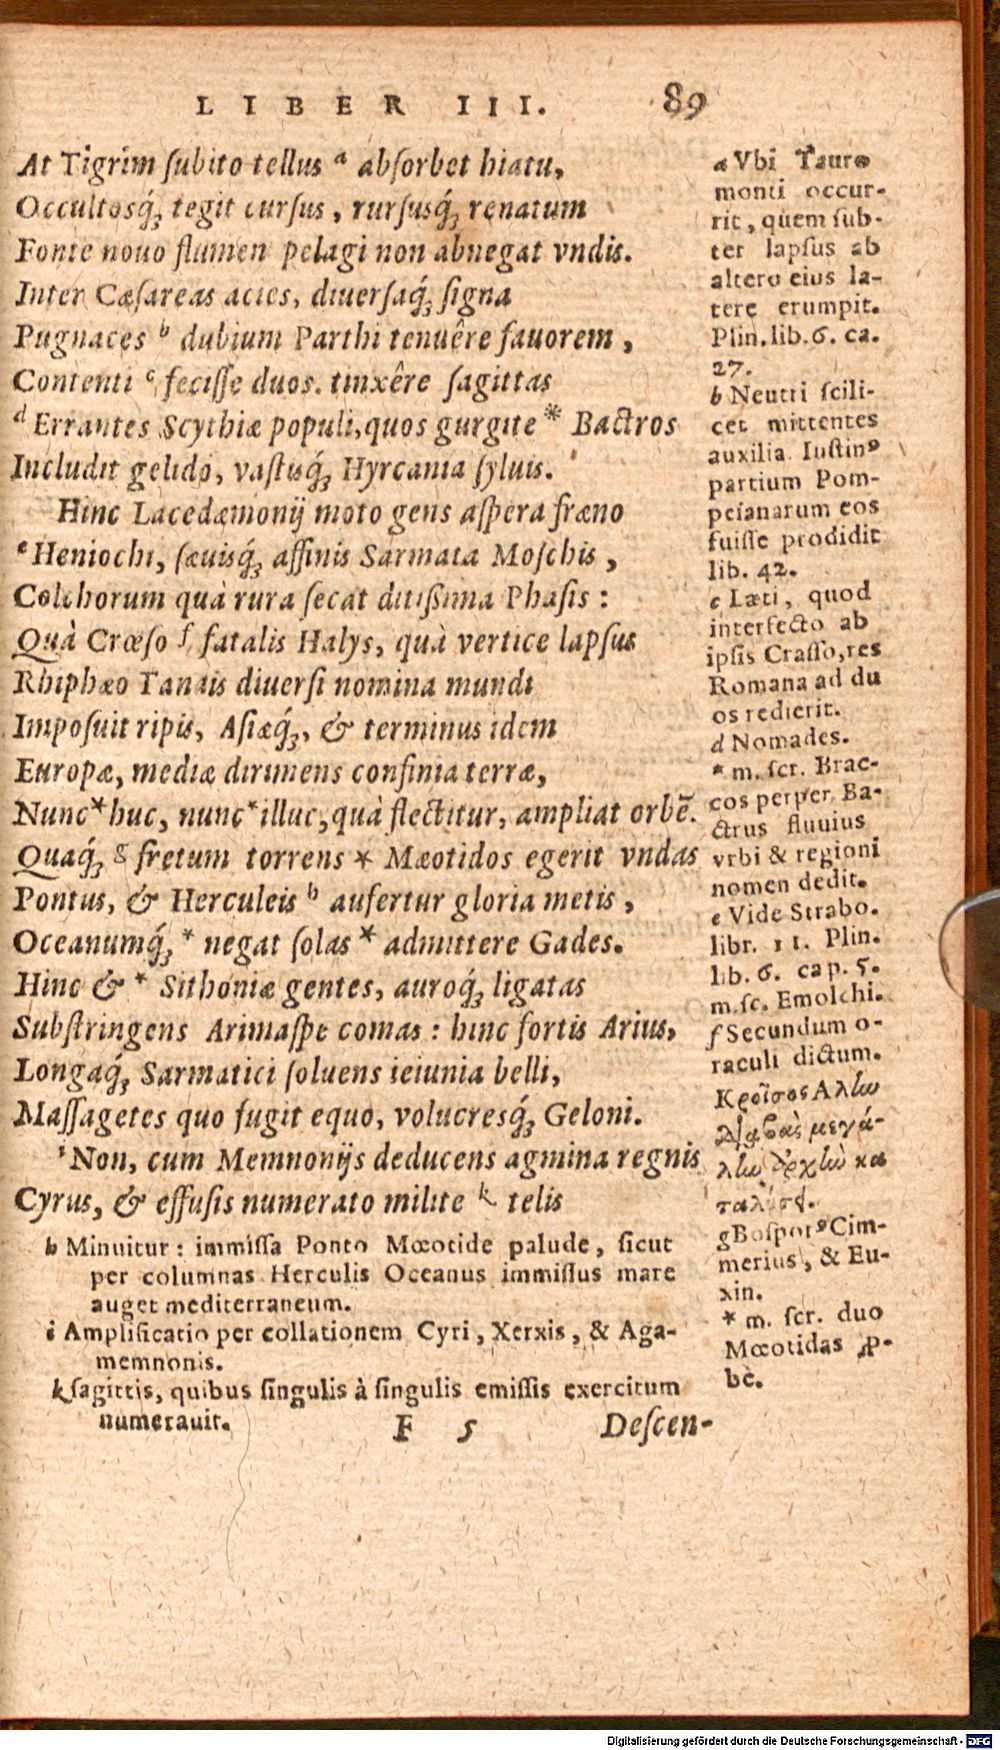 LIBER III. 89
At Tigrim ſubito tellus ᵃ abſorbet hiatu,
Occultosq́ꝫ tegit curſus, rurſusq́ꝫ renatum
Fonte nouo flumen pelagi non abnegat vndis.
Inter Cæſareas acies, diuerſaq́ꝫ ſigna
Pugnaces ᵇ dubium Parthi tenuêre fauorem,
Contenti ᶜ feciſſe duos. tinxêre ſagittas
ᵈ Errantes Scythiæ populi, quos gurgite * Bactros
Includit gelido, vaſtisq́ꝫ Hyrcania ſyluis.
Hinc Lacedæmonij moto gens aſpera fræno
ᵉ Heniochi, ſæuisq́ꝫ affinis Sarmata Moſchis,
Colchorum quà rura ſecat ditißima Phaſis:
Quà Crœſo ᶠ fatalis Halys, quà vertice lapſus
Rhiphæo Tanais diuerſi nomina mundi
Impoſuit ripis, Aſiæq́ꝫ, & terminus idem
Europæ, mediæ dirimens confinia terræ,
Nunc * huc, nunc * illuc, quà flectitur, ampliat orbē.
Quaq́ꝫ ᵍ fretum torrens * Mæotidos egerit vndas
Pontus, & Herculeis ʰ aufertur gloria metis,
Oceanumq́ꝫ * negat ſolas * admittere Gades.
Hinc & * Sithoniæ gentes, auroq́ꝫ ligatas
Subſtringens Arimaſpe comas: hinc fortis Arius,
Longaq́ꝫ Sarmatici ſoluens ieiunia belli,
Maſſagetes quo fugit equo, volucresq́ꝫ Geloni.
ⁱ Non, cum Memnonijs deducens agmina regnis
Cyrus, & effuſis numerato milite ᵏ telis
h Minuitur: immiſſa Ponto Mœotide palude, ſicut
per columnas Herculis Oceanus immiſſus mare
auget mediterraneum.
i Amplificatio per collationem Cyri, Xerxis, & Aga-
memnonis.
k ſagittis, quibus ſingulis à ſingulis emiſſis exercitum
numerauit.
F 5 Deſcen-
a Vbi Tauro
monti occur-
rit, quem ſub-
ter lapſus ab
altero eius la-
tere erumpit.
Plin. lib. 6. ca.
27.
b Neutri ſcili-
cet mittentes
auxilia Iuſtinꝰ
partium Pom-
peianarum eos
fuiſſe prodidit
lib. 42.
c Læti, quod
interfecto ab
ipſis Craſſo, res
Romana ad du
os redierit.
d Nomades.
* m. ſcr. Brac-
cos perper. Ba-
ctrus fluuius
vrbi & regioni
nomen dedit.
e Vide Strabo.
libr. 11. Plin.
lib. 6. cap. 5.
m. ſc. Emolchi.
f Secundum o-
raculi dictum.
Κροῖσος Ἅλυν
διαβὰς μεγά-
λην ἀρχὴν κα
ταλύσει.
g Boſporꝰ Cim-
merius, & Eu-
xin.
* m. ſcr. duo
Mœotidas ꝓ-
bè.